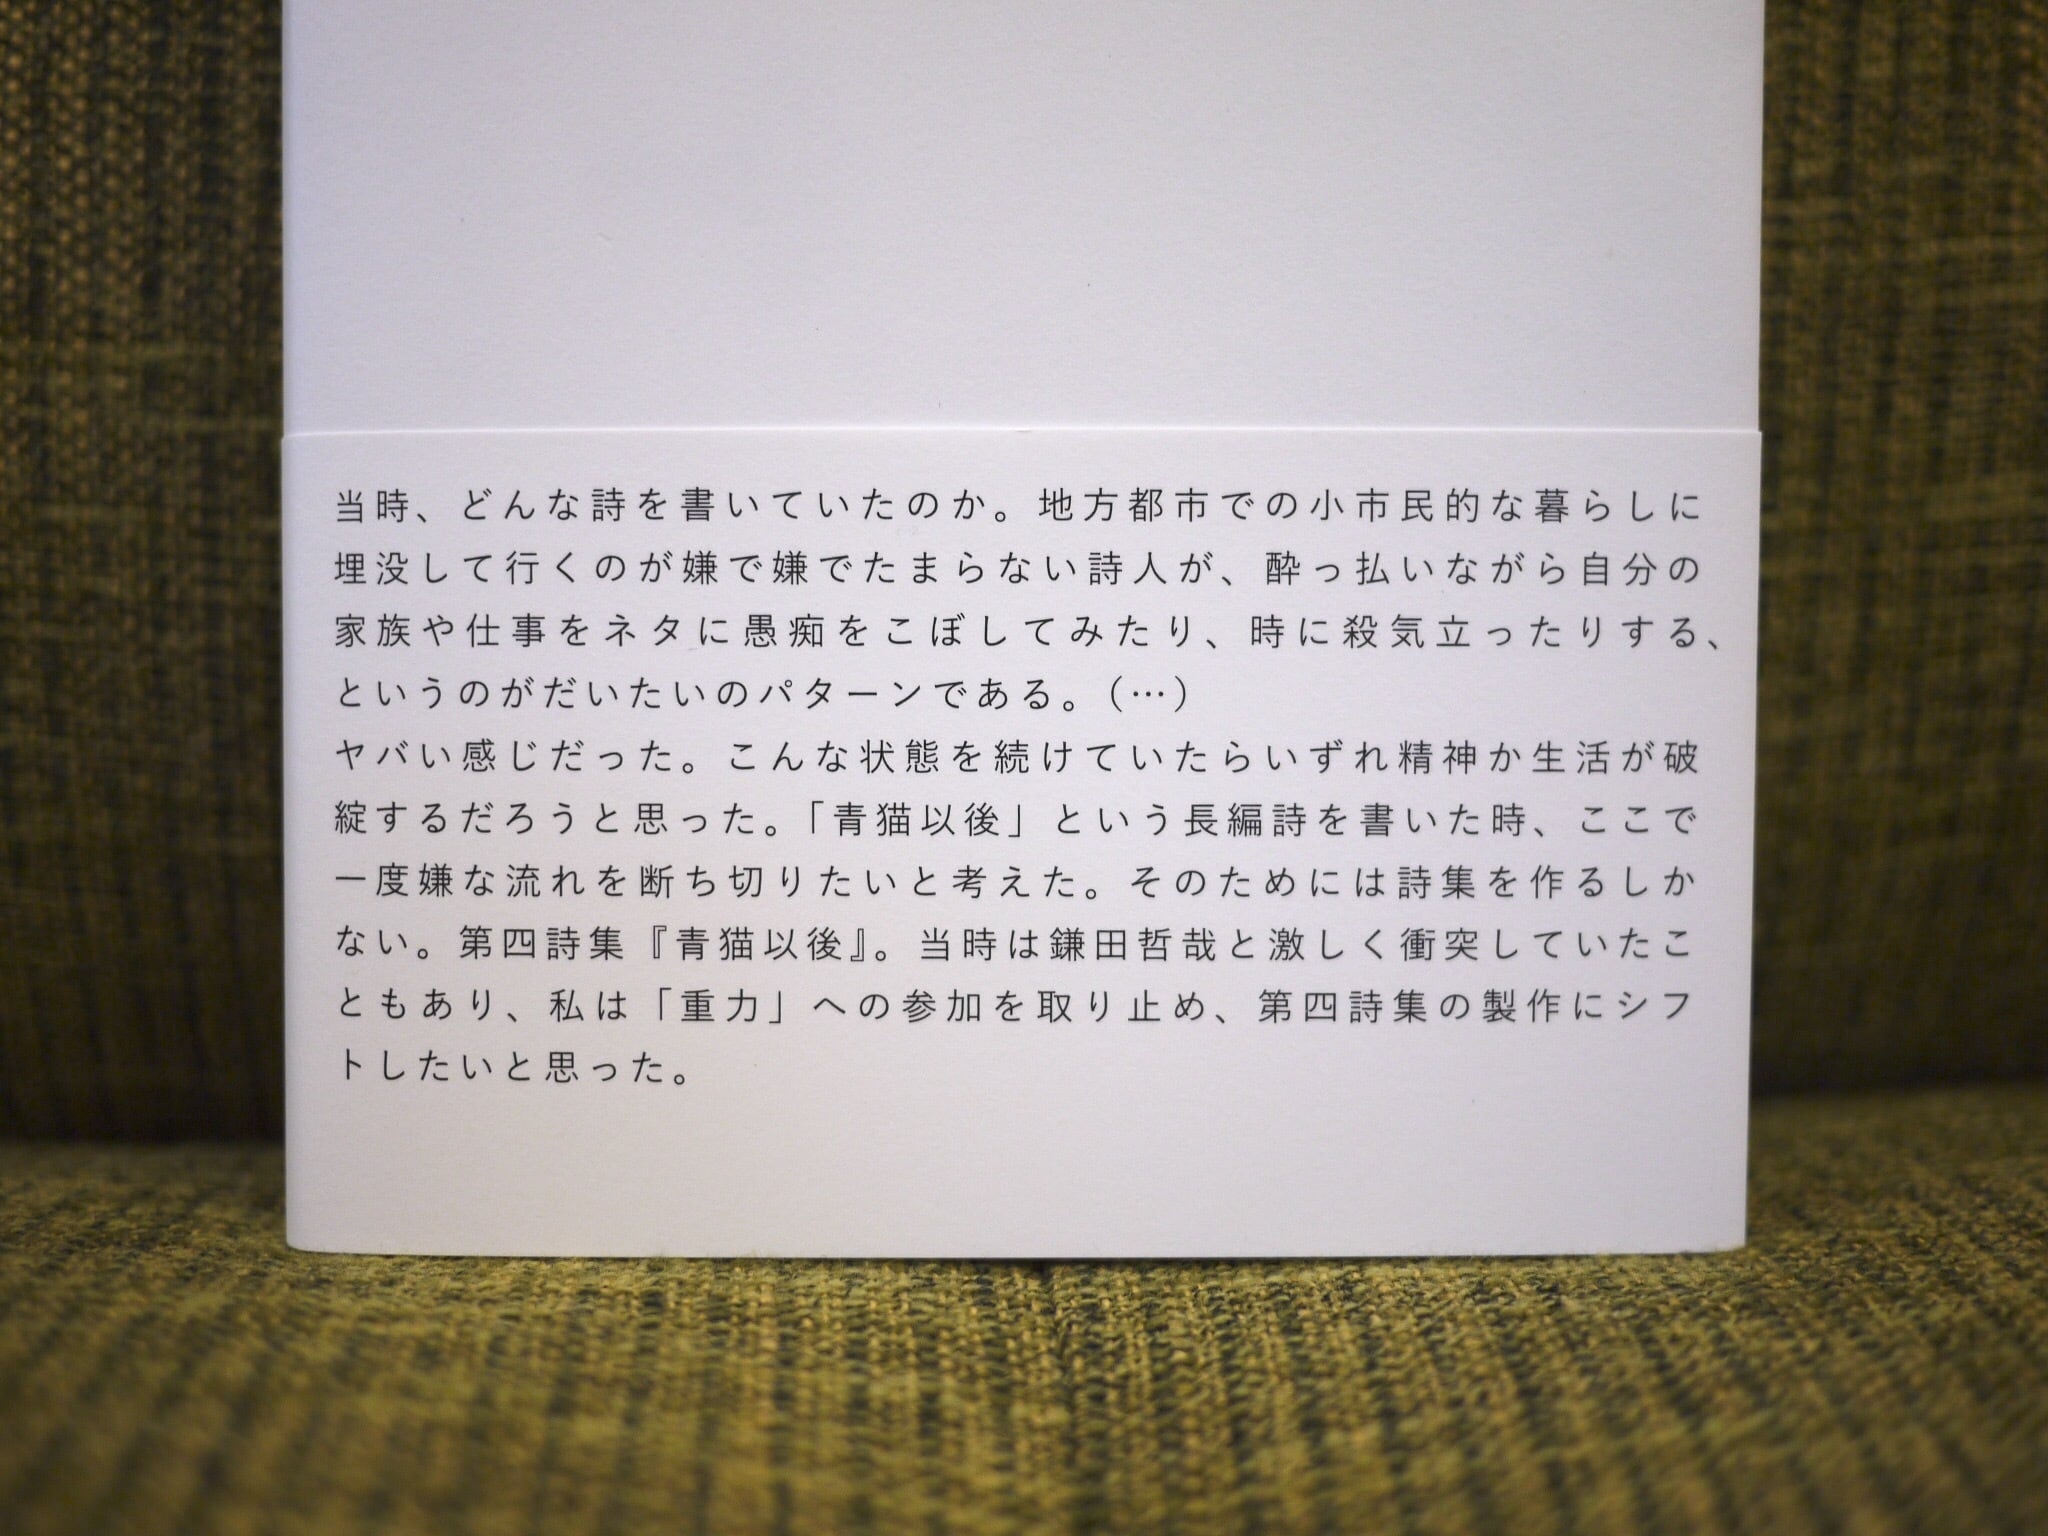 当時、どんな詩を書いていたのか。地方都市での小市民的な暮らしに
埋没して行くのが嫌で嫌でたまらない詩人が、酔っ払いながら自分の
家族や仕事をネタに愚痴をこぼしてみたり、時に殺気立ったりする、
というのがだいたいのパターンである。（…）
ヤバい感じだった。こんな状態を続けていたらいずれ精神か生活が破
綻するだろうと思った。「青猫以後」という長編詩を書いた時、ここで
一度嫌な流れを断ち切りたいと考えた。そのためには詩集を作るしか
ない。第四詩集『青猫以後』。当時は鎌田哲哉と激しく衝突していたこ
ともあり、私は「重力」への参加を取り止め、第四詩集の製作にシフ
トしたいと思った。